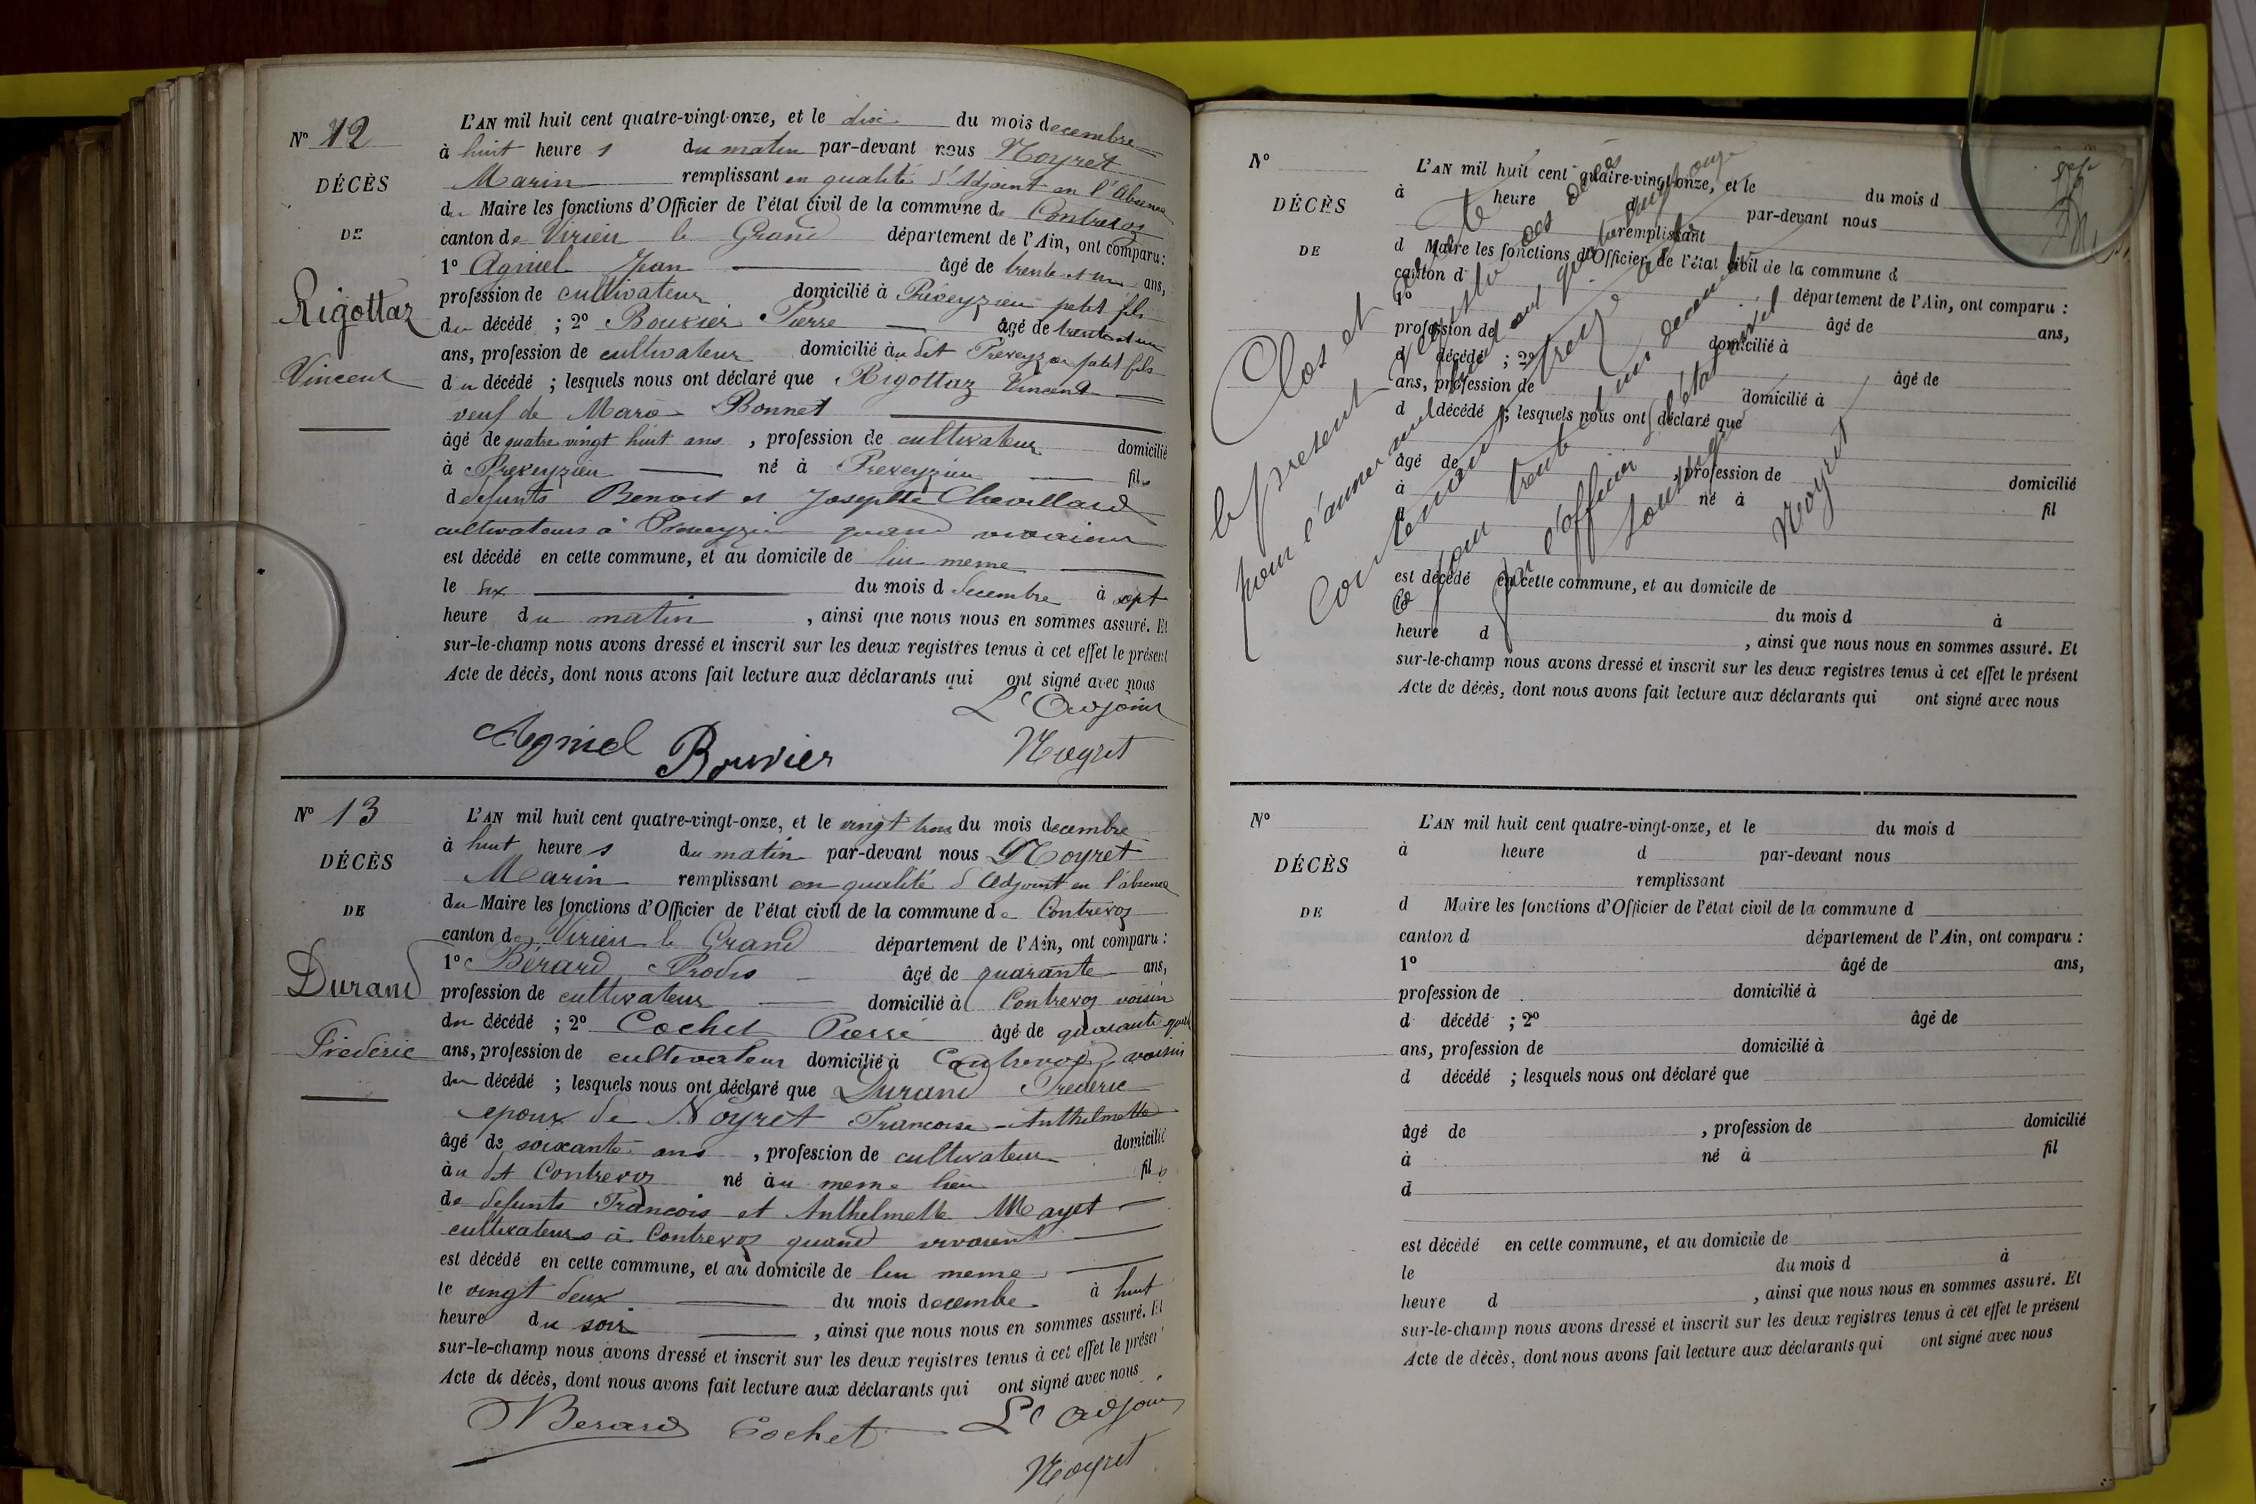 N° 12
DÉCÈS
DE
Rigottaz
Vincent
L'AN mil huit cent quatre-vingt-onze, et le dix du mois decembre
à huit heures du matin par-devant nous Noyret
Marin remplissant en qualité d'Adjoint en l'absence
du Maire les fonctions d'Officier de l'état civil de la commune de Contrevoz
canton de Virieu le Grand département de l'Ain, ont comparu :
1° Agniel Jean âgé de trente et un ans,
profession de cultivateur domicilié à Preveyzieu petit fils
du décédé ; 2° Bouvier Pierre âgé de trente et un
ans, profession de cultivateur domicilié au dit Preveyzieu petit fils
du décédé ; lesquels nous ont déclaré que Rigottaz Vincent
veuf de Marie Bonnet
âgé de quatre vingt huit ans , profession de cultivateur domicilié
à Preveyzieu né à Preveyzieu fils
defunts Benoit et Josephte Chevillard
cultivateurs à Preveyzieu quand vivaient
est décédé en cette commune, et au domicile de lui meme
le six du mois d decembre à sept
heure du matin , ainsi que nous nous en sommes assuré. Et
sur-le-champ nous avons dressé et inscrit sur les deux registres tenus à cet effet le présent
Acte de décès, dont nous avons fait lecture aux déclarants qui ont signé avec nous
L'Adjoint
Agniel Bouvier Noyret
N° 13
DÉCÈS
DE
Durand
Frederic
L'AN mil huit cent quatre-vingt-onze, et le vingt trois du mois decembre
à huit heures du matin par-devant nous Noyret
Marin remplissant en qualité d'Adjoint en l'absence
du Maire les fonctions d'Officier de l'état civil de la commune de Contrevoz
canton de Virieu le Grand département de l'Ain, ont comparu :
1° Bérard âgé de quarante ans,
profession de cultivateur domicilié à Contrevoz voisin
du décédé ; 2° Cochet Pierre âgé de quarante quatre
ans, profession de cultivateur domicilié à Contrevoz, voisin
du décédé ; lesquels nous ont déclaré que Durand Frederic
epoux de Noyret Francoise Anthelmette
âgé de soixante ans , profession de cultivateur domicilié
au dit Contrevoz né au meme lieu fils
de defunts Francois et Anthelmette Mayet
cultivateurs à Contrevoz quand vivaient
est décédé en cette commune, et au domicile de lui meme
le vingt deux du mois decembre à huit
heure du soir , ainsi que nous nous en sommes assuré. Et
sur-le-champ nous avons dressé et inscrit sur les deux registres tenus à cet effet le présent
Acte de décès, dont nous avons fait lecture aux déclarants qui ont signé avec nous
Berard Cochet L'Adjoint
Noyret
N°
DÉCÈS
DE
L'AN mil huit cent quatre-vingt-onze, et le du mois d
à heure par-devant nous
remplissant
d Maire les fonctions d'Officier de l'état civil de la commune d
canton d département de l'Ain, ont comparu :
1° âgé de ans,
profession de domicilié à
d décédé ; 2° âgé de
ans, profession de domicilié à
d décédé ; lesquels nous ont déclaré que
âgé de , profession de domicilié
à né à fil
d
est décédé en cette commune, et au domicile de
le du mois d à
heure d , ainsi que nous nous en sommes assuré. Et
sur-le-champ nous avons dressé et inscrit sur les deux registres tenus à cet effet le présent
Acte de décès, dont nous avons fait lecture aux déclarants qui ont signé avec nous
Clos et
le present registre des décès
pour l'annee mil huit cent quatre vingt onze
Contenant treize
jour trente un decembre
par l'officier de l'état civil
soussigné
Noyret
N°
DÉCÈS
DE
L'AN mil huit cent quatre-vingt-onze, et le du mois d
à heure d par-devant nous
remplissant
d Maire les fonctions d'Officier de l'état civil de la commune d
canton d département de l'Ain, ont comparu :
1° âgé de ans,
profession de domicilié à
d décédé ; 2° âgé de
ans, profession de domicilié à
d décédé ; lesquels nous ont déclaré que
âgé de , profession de domicilié
à né à fil
d
est décédé en cette commune, et au domicile de
le du mois d à
heure d , ainsi que nous nous en sommes assuré. Et
sur-le-champ nous avons dressé et inscrit sur les deux registres tenus à cet effet le présent
Acte de décès, dont nous avons fait lecture aux déclarants qui ont signé avec nous